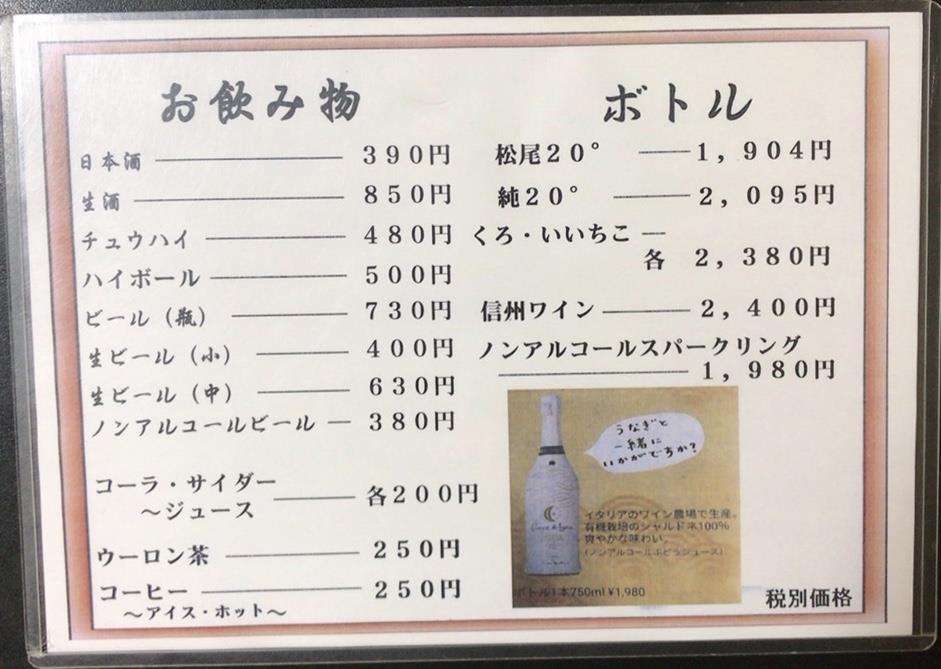 お飲み物
日本酒 390円
生酒 850円
チュウハイ 480円
ハイボール 500円
ビール（瓶） 730円
生ビール（小） 400円
生ビール（中） 630円
ノンアルコールビール 380円
コーラ・サイダー
～ジュース 各200円
ウーロン茶 250円
コーヒー 250円
～アイス・ホット～
ボトル
松尾20° 1,904円
純20° 2,095円
くろ・いいちこ
各 2,380円
信州ワイン 2,400円
ノンアルコールスパークリング
1,980円
うなぎと
一緒に
いかがですか?
イタリアのワイン農場で生産。
有機栽培のシャルドネ100%
爽やかな味わい。
ボトル1本750ml ¥1,980
税別価格